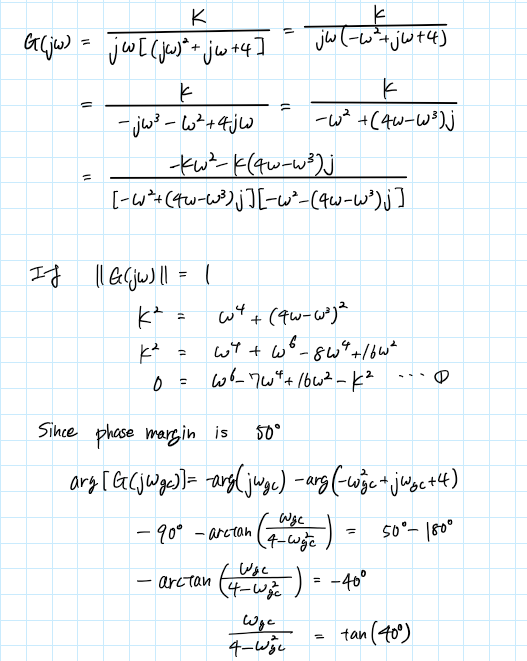 G(jω) = K / (jω[(jω)²+jω+4]) = k / (jω(-ω²+jω+4))
= k / (-jω³-ω²+4jω) = k / (-ω²+(4ω-ω³)j)
= (-kω²-k(4ω-ω³)j) / ([-ω²+(4ω-ω³)j][-ω²-(4ω-ω³)j])
If ||G(jω)|| = 1
k² = ω⁴+(4ω-ω³)²
k² = ω⁴+ω⁶-8ω⁴+16ω²
0 = ω⁶-7ω⁴+16ω²-k² ··· ①
Since phase margin is 50°
arg[G(jωgc)]= -arg(jωgc) -arg(-ω²gc+jωgc+4)
-90° -arctan(ωgc / (4-ω²gc)) = 50°-180°
-arctan(ωgc / (4-ω²gc)) = -40°
ωgc / (4-ω²gc) = tan(40°)